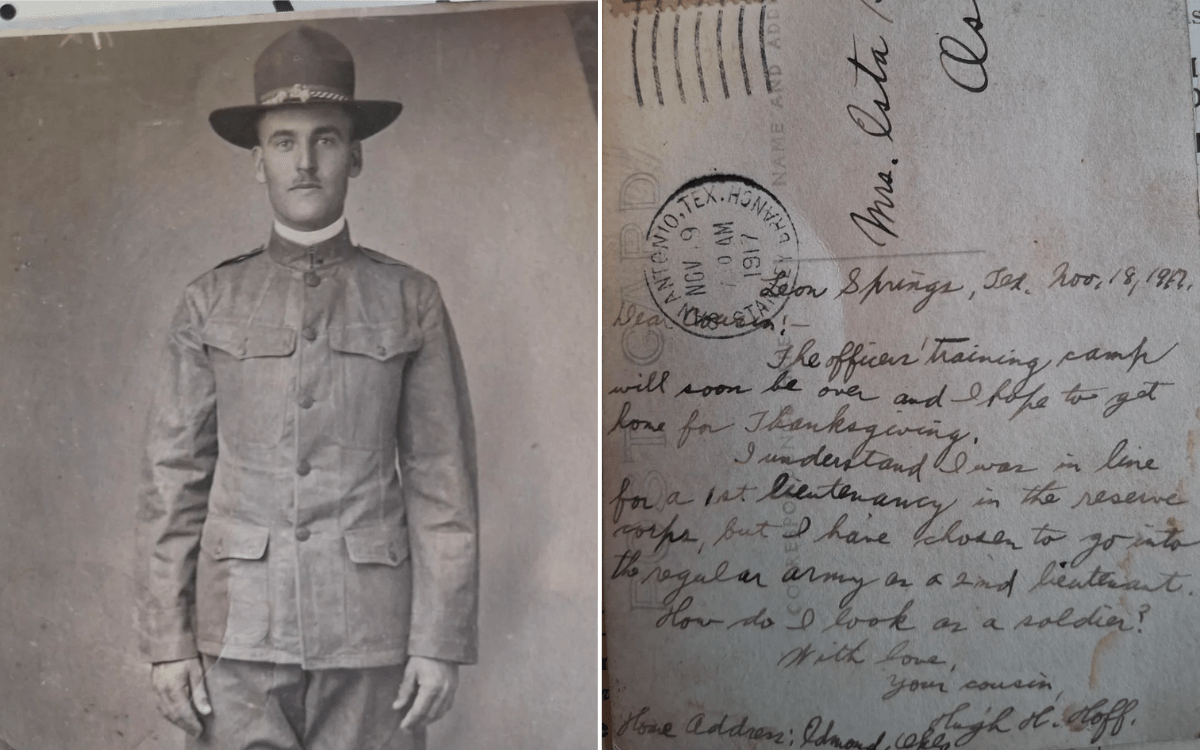 Mrs. Esta
NAME AND ADD
SAN ANTONIO, TEX.
STANLEY BRANCH
NOV 9
AM
1917
Leon Springs, Tex. Nov. 18, 1917.
Dear Cousin:—
The officers' training camp
will soon be over and I hope to get
home for Thanksgiving.
I understand I was in line
for a 1st lieutenancy in the reserve
corps, but I have chosen to go into
the regular army as a 2nd lieutenant.
How do I look as a soldier?
With love,
Your cousin,
Hugh H. Hoff.
Home Address: Edmond, Okla.
POST CARD